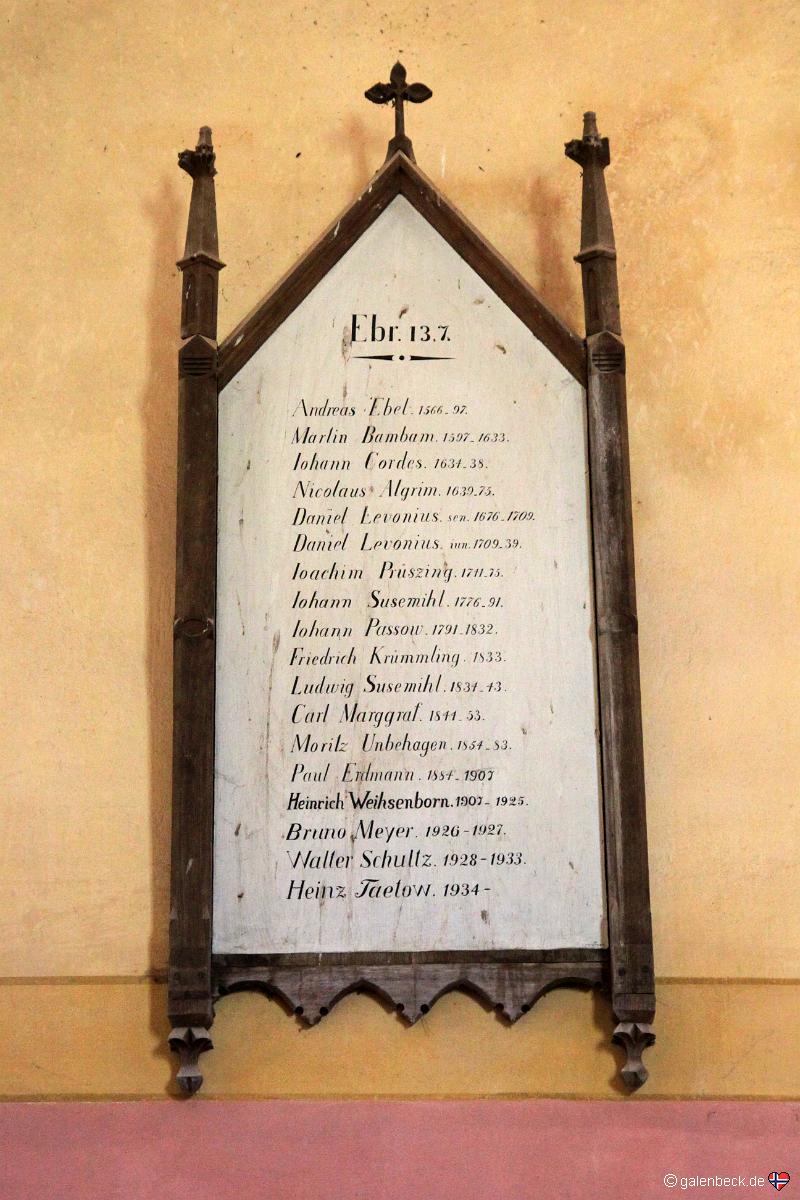 Ebr. 13.7.
Andreas Ebel. 1566-97.
Martin Bambam. 1597-1633.
Iohann Cordes. 1634-38.
Nicolaus Algrim. 1639-75.
Daniel Levonius. sen. 1676-1709.
Daniel Levonius. iun. 1709-39.
Ioachim Prüszing. 1741-75.
Iohann Susemihl. 1776-91.
Iohann Passow. 1791-1832.
Friedrich Krümmling. 1833.
Ludwig Susemihl. 1834-43.
Carl Marggraf. 1844-53.
Moritz Unbehagen. 1854-83.
Paul Erdmann. 1884-1907
Heinrich Weihsenborn. 1907-1925.
Bruno Meyer. 1926-1927.
Walter Schultz. 1928-1933.
Heinz Taetow. 1934-
© galenbeck.de